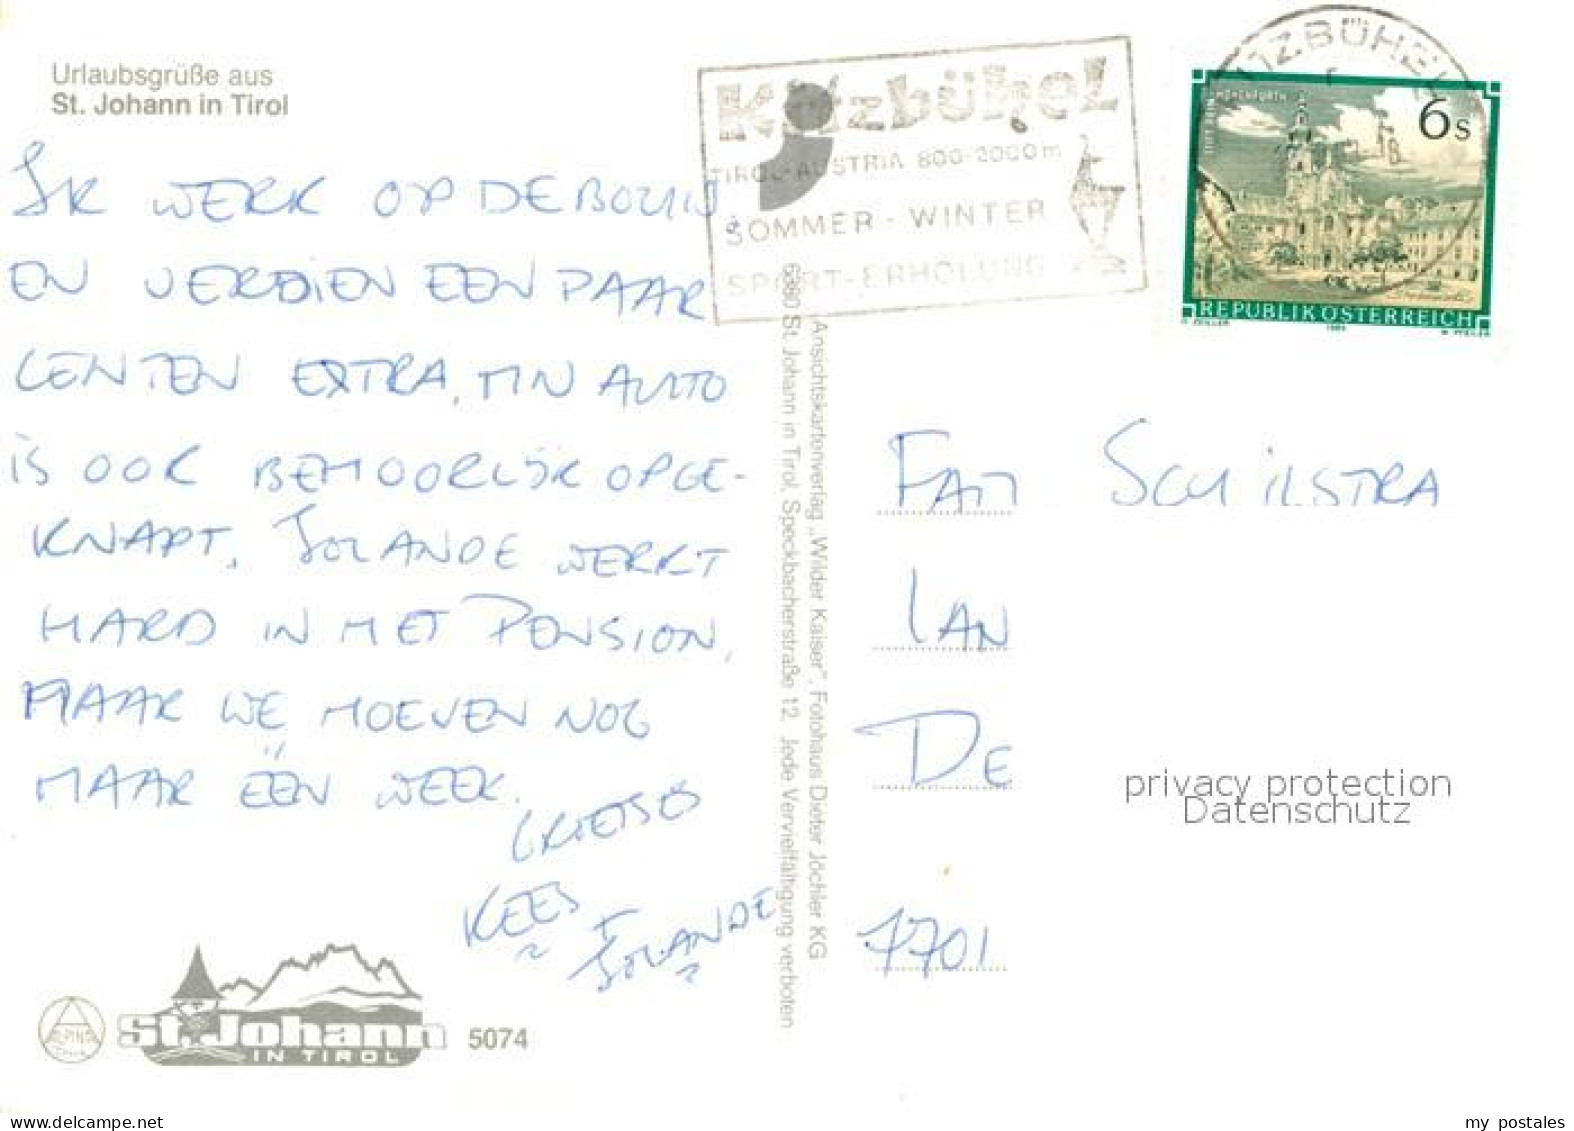 Urlaubsgrüße aus
St. Johann in Tirol
IK WERK OP DE BOUW
EN VERDIEN EEN PAAR
CENTEN EXTRA, MN AUTO
IS OOK BEHOORLIJK OPGE-
KNAPT. JOLANDE WERKT
HARD IN HET PENSION,
MAAR WE HOEVEN NOG
MAAR ÉÉN WEEK.
GRIETJES
KEES
+
JOLANDE
St. Johann
IN TIROL
5074
ALPINA
Kitzbühel
TIROL-AUSTRIA 800-2000m
SOMMER - WINTER
SPORT-ERHOLUNG
Ansichtskartenverlag „Wilder Kaiser", Fotohaus Dieter Jöchler KG
6380 St. Johann in Tirol, Speckbacherstraße 12. Jede Vervielfältigung verboten
KITZBÜHEL
6s
REPUBLIK ÖSTERREICH
FAM SCHILSTRA
LAN
DE
7701
privacy protection
Datenschutz
www.delcampe.net
my_postales